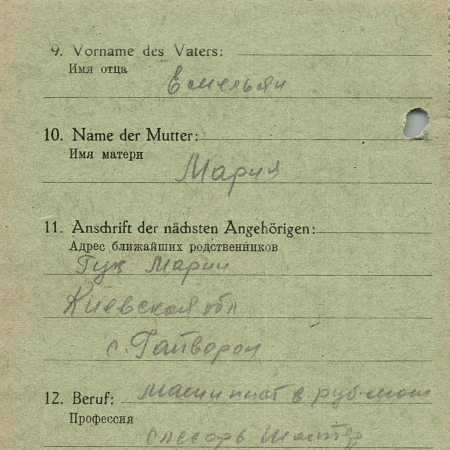 9. Vorname des Vaters:
Имя отца
Емельян
10. Name der Mutter:
Имя матери
Мария
11. Anschrift der nächsten Angehörigen:
Адрес ближайших родственников
Гук Марии
Киевская обл
с. Гайворон
12. Beruf: Машинист
Профессия
слесарь